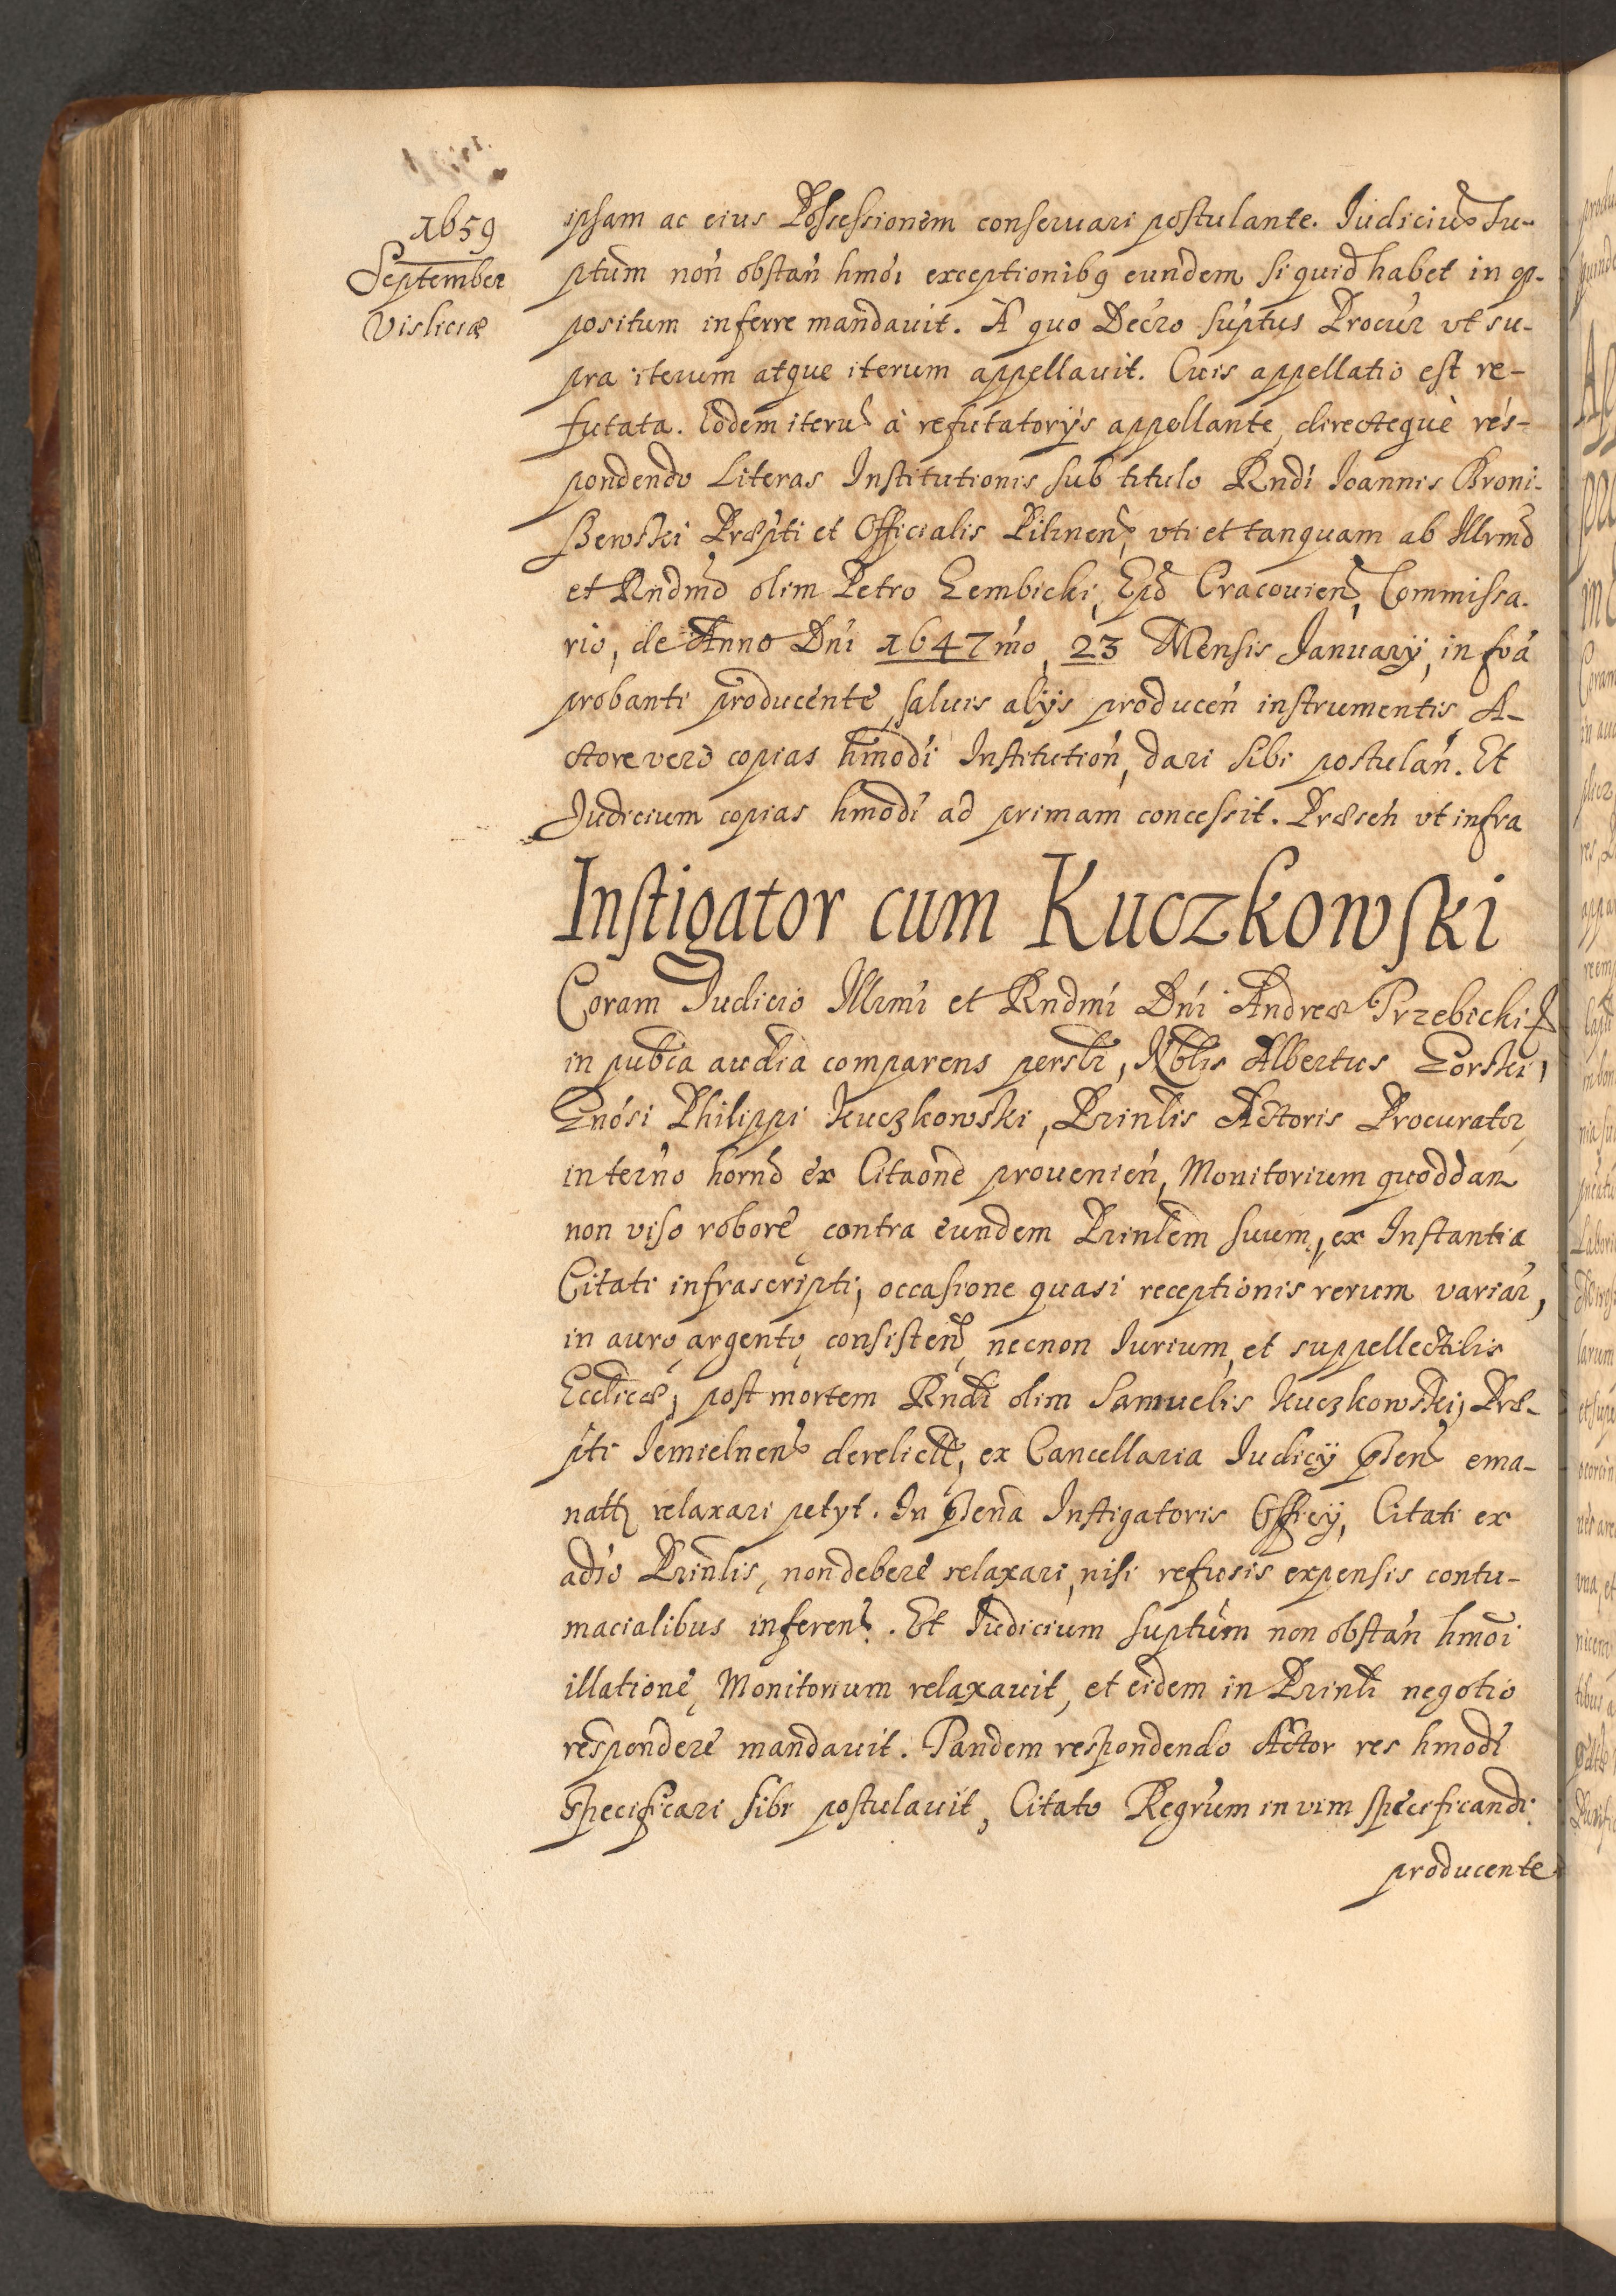 1659
September
Visliciæ
ipsam ac eius Possessionem conseruari postulante. Iudiciũ Su-
ptum non obstan̄ hmōi exceptionibq eundem si quid habet in op-
positum inferre mandauit. A quo Decro suptus Procur vt su-
pra iterum atque iterum appellauit. Cuis appellatio est re-
futata. Eodem iterũ à refutatorÿs appellante, directequè res-
pondendo Literas Institutionis sub titulo Rndi Ioannis Broni-
szewski Præpti et Officialis Pilznen, vti et tanquam ab Illrmo
et Rndmo olim Petro Gembicki, Epo Cracouien, Commissa-
rio, de Anno Dni 1647mo, 23 Mensis Januarÿ, in foā
probanti producente, saluis alÿs producen̄ instrumentis, A-
ctore vero copias hmodi Institution̄, dari sibi postulan̄. Et
Judicium copias hmodi ad primam concessit. Præsen̄ vt infra
Instigator cum Kuczkowski
Coram Judicio Illrmi et Rndmi Dni Andreæ Trzebicki
in pubca audia comparens persłr, Nblis Albertus Gorski,
Gnosi Philippi Kuczkowski, Prinlis Actoris Procurator
in terno horno ex Citaone prouenien̄, Monitorium quoddam
non viso robore contra eundem Prinlem suum, ex Instantia
Citati infrascripti, occasione quasi receptionis rerum variar,
in auro argento consisten, necnon Iurium, et suppellectilis
Ecclicæ, post mortem Rndi olim Samuelis Kuczkowski, Præ-
pti Iemielnen derelictt, ex Cancellaria Iudicÿ psen ema-
natt relaxari petyt. In psena Instigatoris Officÿ, Citati ex
adso Prinlis, non debere relaxari, nisi refusis expensis contu-
macialibus inferen. Et Judicium suptum non obstan̄ hmoi
illatione, Monitorium relaxauit, et eidem in Prinli negotio
respondere mandauit. Tandem respondendo Actor res hmodi
specificari sibi postulauit, Citato Regrum in vim specificandi
producente